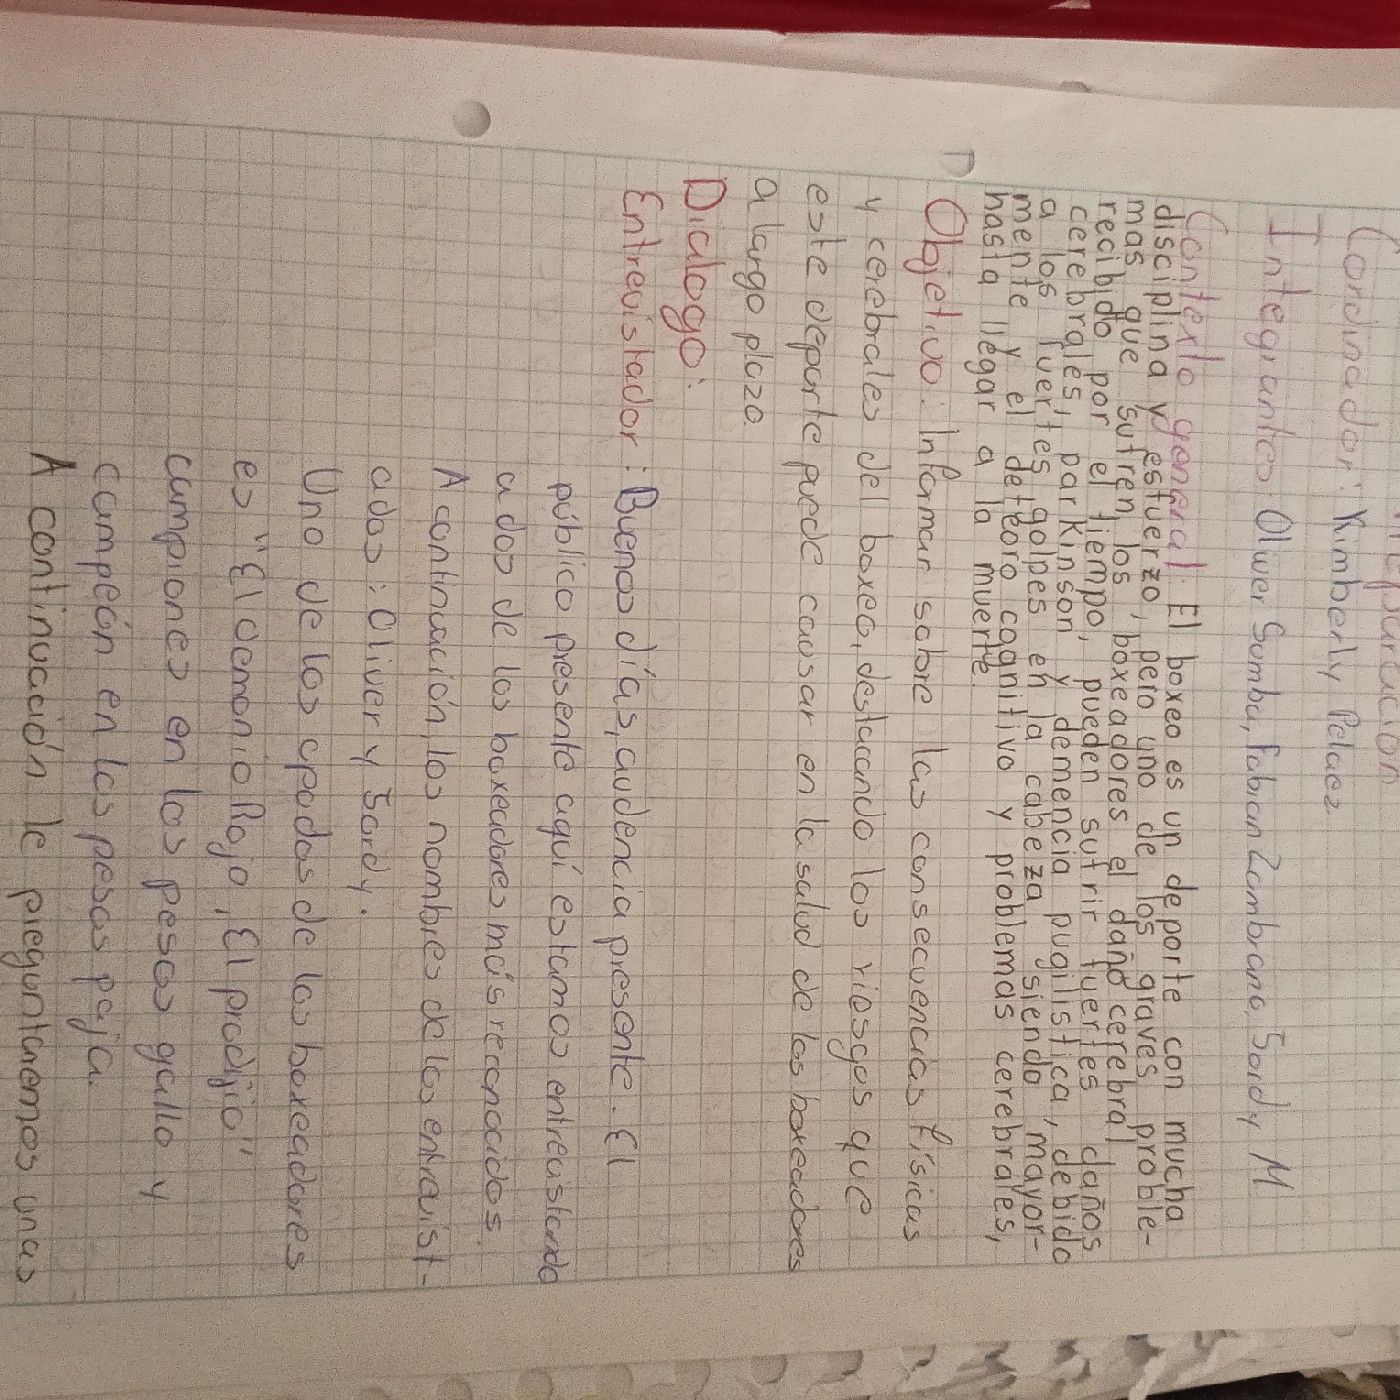 Cordinador: Kimberly Pelaez
Integrantes: Oliwer Sumba, Fabian Zambrano, Sordy M
Contexto general: El boxeo es un deporte con mucha
disciplina y estuerzo, pero uno de los graves proble-
mas que sufren los boxeadores el daño cerebral
recibido por el tiempo, pueden sufrir fuertes daños
cerebrales, parkinson y demencia pugilistica, debido
a los fuertes golpes en la cabeza siendo mayor-
mente y el deteoro cognitivo y problemas cerebrales,
hasta llegar a la muerte
Objetivo: Informar sobre las consecuencias físicas
y cerebrales del boxeo, destacando los riesgos que
este deporte puede causar en la salud de los boxeadores
a largo plazo
Dialogo:
Entrevistador: Buenos días, audencia presente. El
público presente aquí estamos entreustando
a dos de los boxeadores más reconocidos.
A continuación, los nombres de los entrauist-
ados: Oliver y Sordy.
Uno de los apodos de los boxeadores
es "El demonio Rojo, El prodijio"
campiones en los pesos gallo y
campeón en los pesos paja.
A continuación le preguntaremos unas